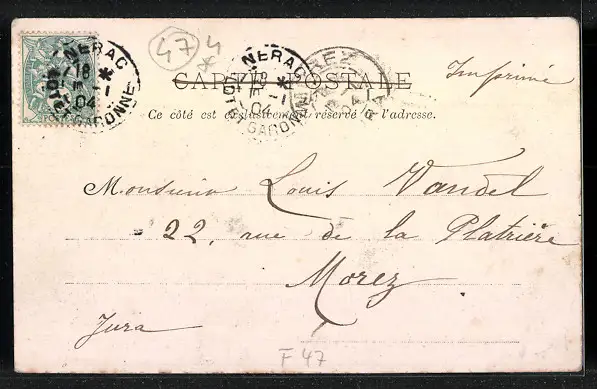 47 4
*
NERAC
18
04
LOT-ET-GARONNE
NERAC
18
04
LOT-ET-GARONNE
MOREZ
04
CARTE POSTALE
Imprimé
Ce côté est exclusivement réservé à l'adresse.
Monsieur Louis Vandel
22, rue de la Platrière
Morez
Jura
F 47